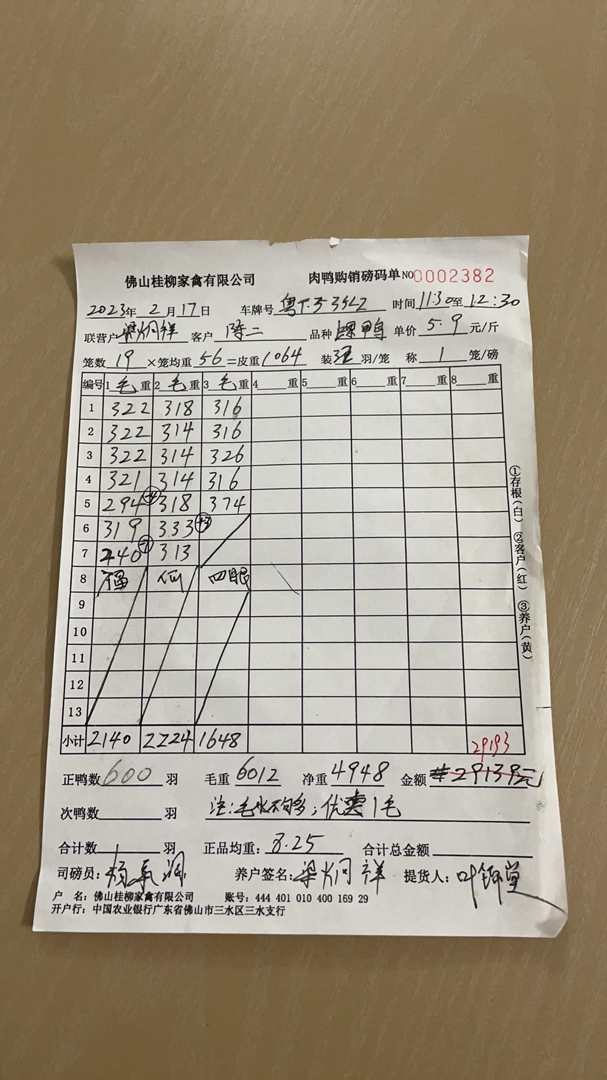 佛山桂柳家禽有限公司 肉鸭购销磅码单 NO 0002382
2023年 2 月 17 日 车牌号 时间 11:30 至 12:30
联营户 梁炳祥 客户 陈二 品种 鸭 单价 5.9 元/斤
笼数 19 ×笼均重 56 =皮重 1064 装 羽/笼 称 1 笼/磅
编号 1 毛 重 2 毛 重 3 毛 重 4 重 5 重 6 重 7 重 8 重
1 322 318 316
2 322 314 316
3 322 314 326
4 321 314 316
5 294 318 374
6 319 333 +3
7 240 313
8 四眼
9
10
11
12
13
小计 2140 2224 1648 29193
正鸭数 600 羽 毛重 6012 净重 4948 金额 #29139元
次鸭数 羽 注:毛 不多;优 1毛
合计数 羽 正品均重: 8.25 合计总金额
司磅员: 养户签名: 梁炳祥 提货人: 叶 堂
户 名: 佛山桂柳家禽有限公司 账号: 444 401 010 400 169 29
开户行: 中国农业银行广东省佛山市三水区三水支行
①存根(白) ②客户(红) ③养户(黄)